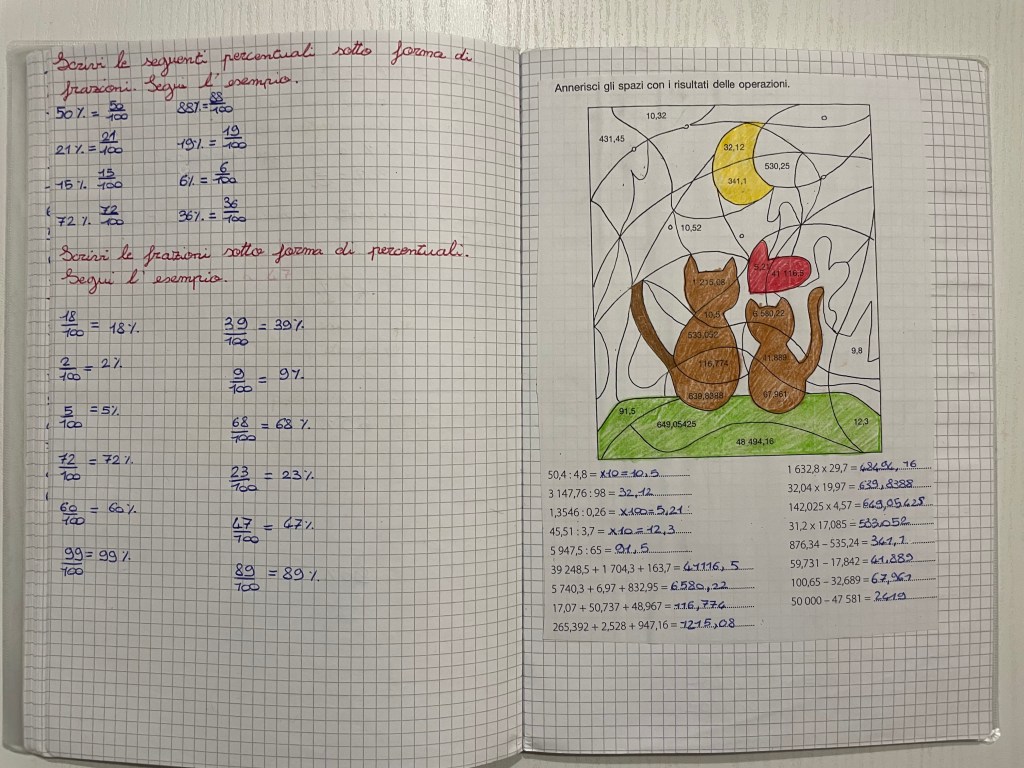 Scrivi le seguenti percentuali sotto forma di
frazioni. Segui l'esempio.
50% = 50/100 88% = 88/100
21% = 21/100 19% = 19/100
15% 15/100 6% = 6/100
72% 72/100 36% = 36/100
Scrivi le frazioni sotto forma di percentuali.
Segui l'esempio.
18/100 = 18% 39/100 = 39%
2/100 = 2% 9/100 = 9%
5/100 = 5% 68/100 = 68%
72/100 = 72% 23/100 = 23%
60/100 = 60% 47/100 = 47%
99/100 = 99% 89/100 = 89%
Annerisci gli spazi con i risultati delle operazioni.
10,32
431,45
32,12
530,25
341,1
10,52
5,21
41 116,5
1 215,08
10,5
6 580,22
533,052
9,8
116,774
41,889
639,8388
67,961
91,5
649,05425
12,3
48 494,16
50,4 : 4,8 = x10 = 10,5
3 147,76 : 98 = 32,12
1,3546 : 0,26 = x100 = 5,21
45,51 : 3,7 = x10 = 12,3
5 947,5 : 65 = 91,5
39 248,5 + 1 704,3 + 163,7 = 41116,5
5 740,3 + 6,97 + 832,95 = 6580,22
17,07 + 50,737 + 48,967 = 116,774
265,392 + 2,528 + 947,16 = 1215,08
1 632,8 x 29,7 = 48494,16
32,04 x 19,97 = 639,8388
142,025 x 4,57 = 649,05425
31,2 x 17,085 = 533,052
876,34 – 535,24 = 341,1
59,731 – 17,842 = 41,889
100,65 – 32,689 = 67,961
50 000 – 47 581 = 2419